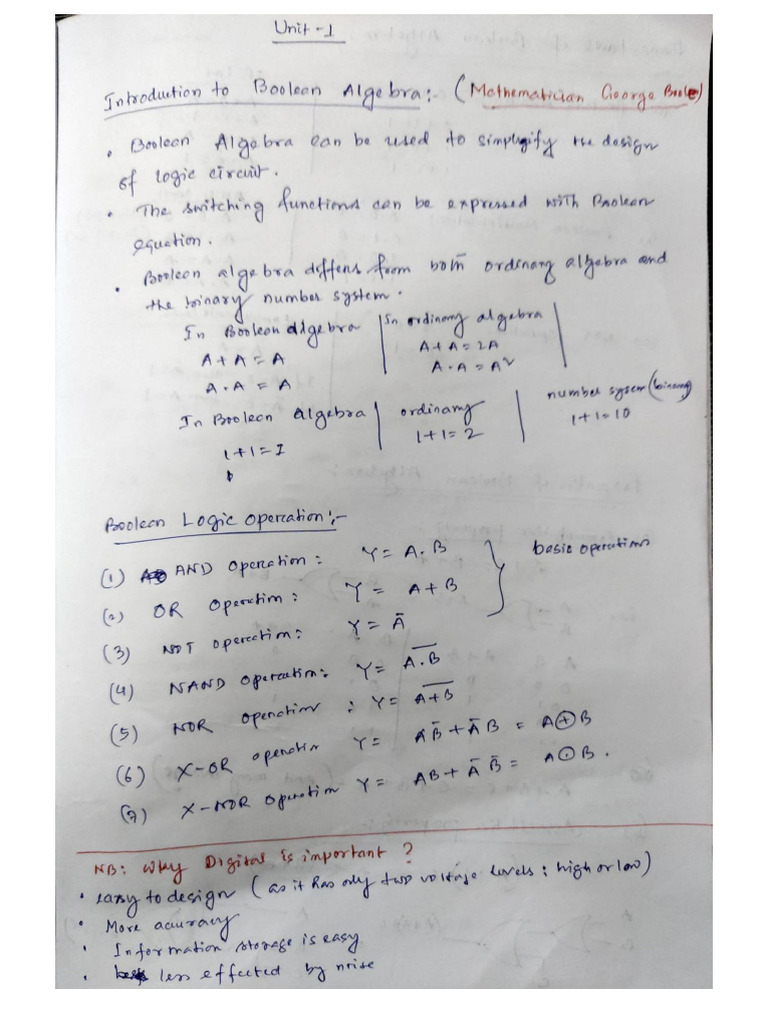 Unit-1
Introduction to Boolean Algebra:- (Mathematician George Boole)
• Boolean Algebra can be used to simplify the design
of logic circuit.
• The switching functions can be expressed with Boolean
equation.
• Boolean algebra differs from both ordinary algebra and
the binary number system.
In Boolean algebra | In ordinary algebra |
A+A=A | A+A=2A
A.A=A | A.A=A²
In Boolean Algebra | ordinary | number sysem (binary)
1+1=1 | 1+1=2 | 1+1=10
Boolean Logic Operation:-
(1) AND Operation: Y = A.B
(2) OR Operation: Y = A+B } basic operations
(3) NOT operation: Y = A̅
(4) NAND Operation: Y = \overline{A.B}
(5) NOR Operation: Y = \overline{A+B}
(6) X-OR operation Y = AB̅ + A̅B = A⊕B
(7) X-NOR Operation Y = AB + A̅ B̅ = A⊙B.
NB: Why Digital is important?
• easy to design (as it has only two voltage levels: high or low)
• More accuracy
• Information storage is easy
• less effected by noise